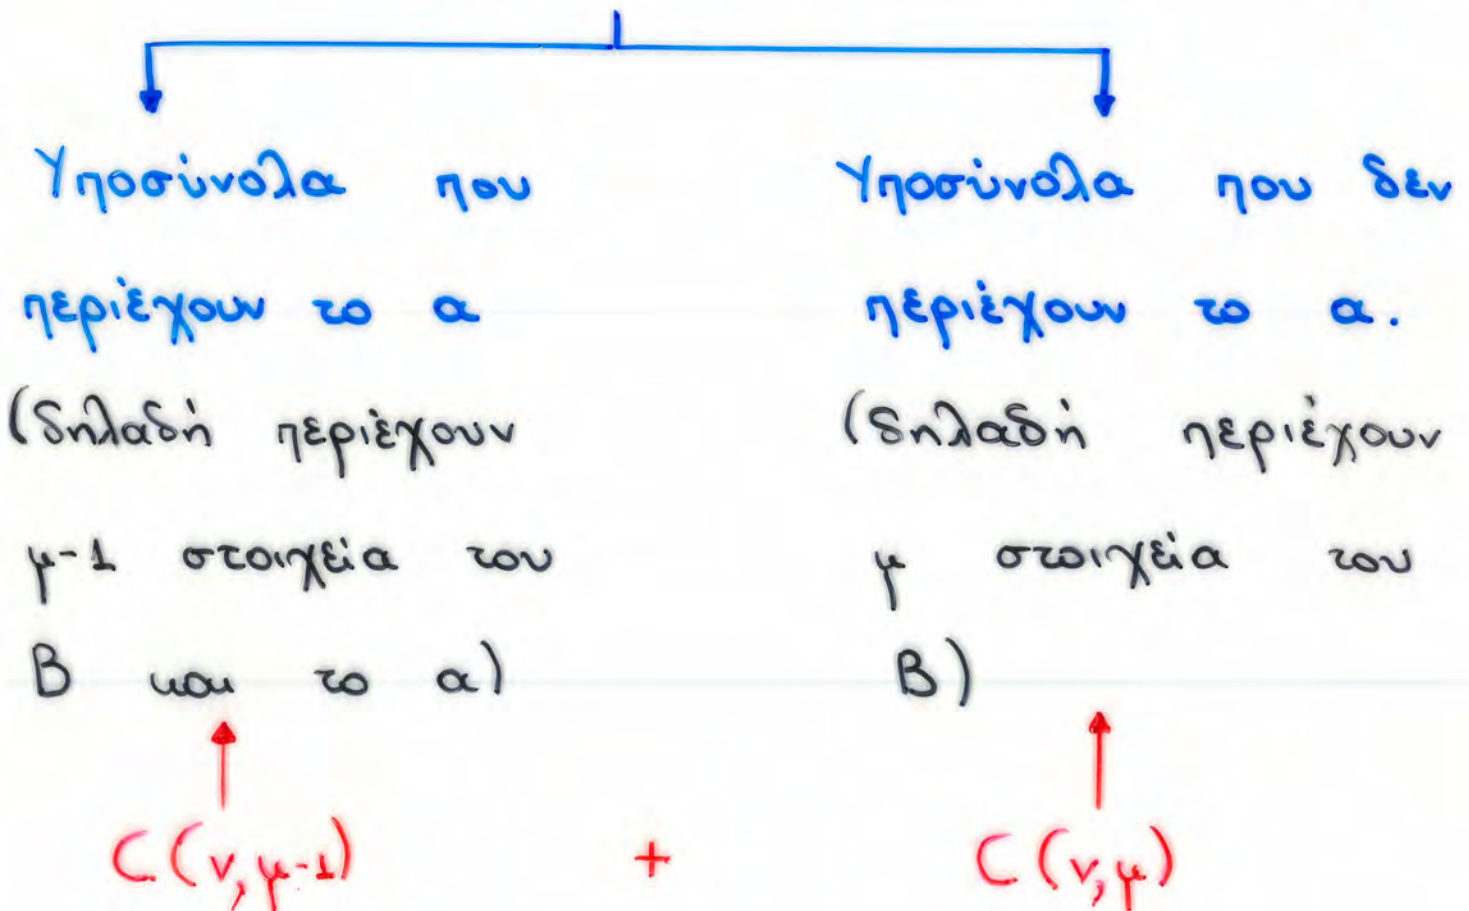 Υποσύνολα που
περιέχουν το α
(δηλαδή περιέχουν
μ-1 στοιχεία του
Β και το α)
C(ν,μ-1)
+
Υποσύνολα που δεν
περιέχουν το α.
(δηλαδή περιέχουν
μ στοιχεία του
Β)
C(ν,μ)